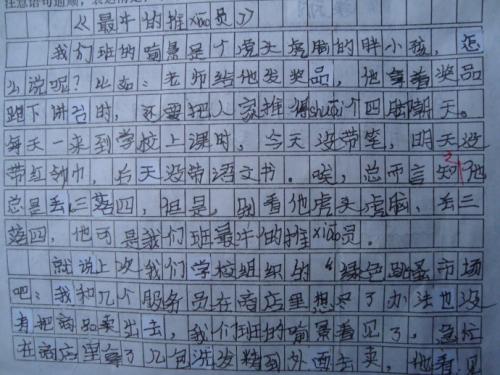 《最牛的推xiāo员》
我们班的喻景是个虎头虎脑的胖小孩,怎
么说呢?比如:老师给他发奖品,他拿着奖品
跑下讲台时,还要把人家推得shuāi个四脚朝天。
每天一来到学校上课时,今天没带笔,明天没
带红领巾,后天没带语文书。唉,总而言之,他
总是丢三落四,但是,别看他虎头虎脑、丢三
落四,他可是我们班最牛的推xiāo员。
就说上次我们学校组织的“绿色跳蚤市场
吧:我和几个服务员在商店里想尽了办法也没
有把商品卖出去,我们班的喻景看见了,急忙
在商店里拿了几包洗发精到外面去卖,他看见